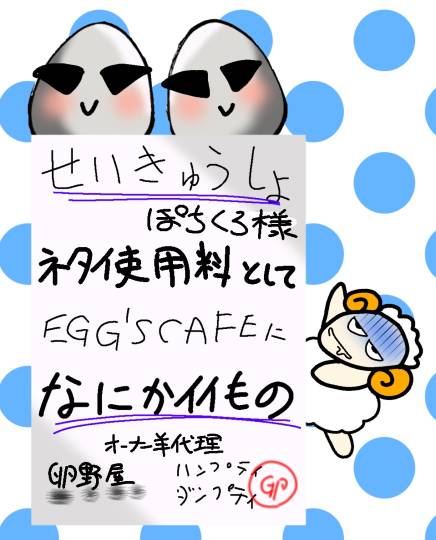 せいきゅうしょ
ぽちくろ様
ネタ使用料として
EGG'SCAFEに
なにかイイもの
オーナー羊代理
卵野屋 ハンプティ
ダンプティ
卵